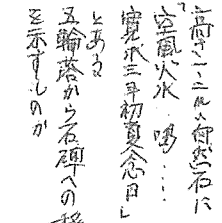 高さ一・二ルの自然石に
「空風火水 ・・・
寛永三年初夏念日」
とある
五輪塔から石碑への移
を示すものか